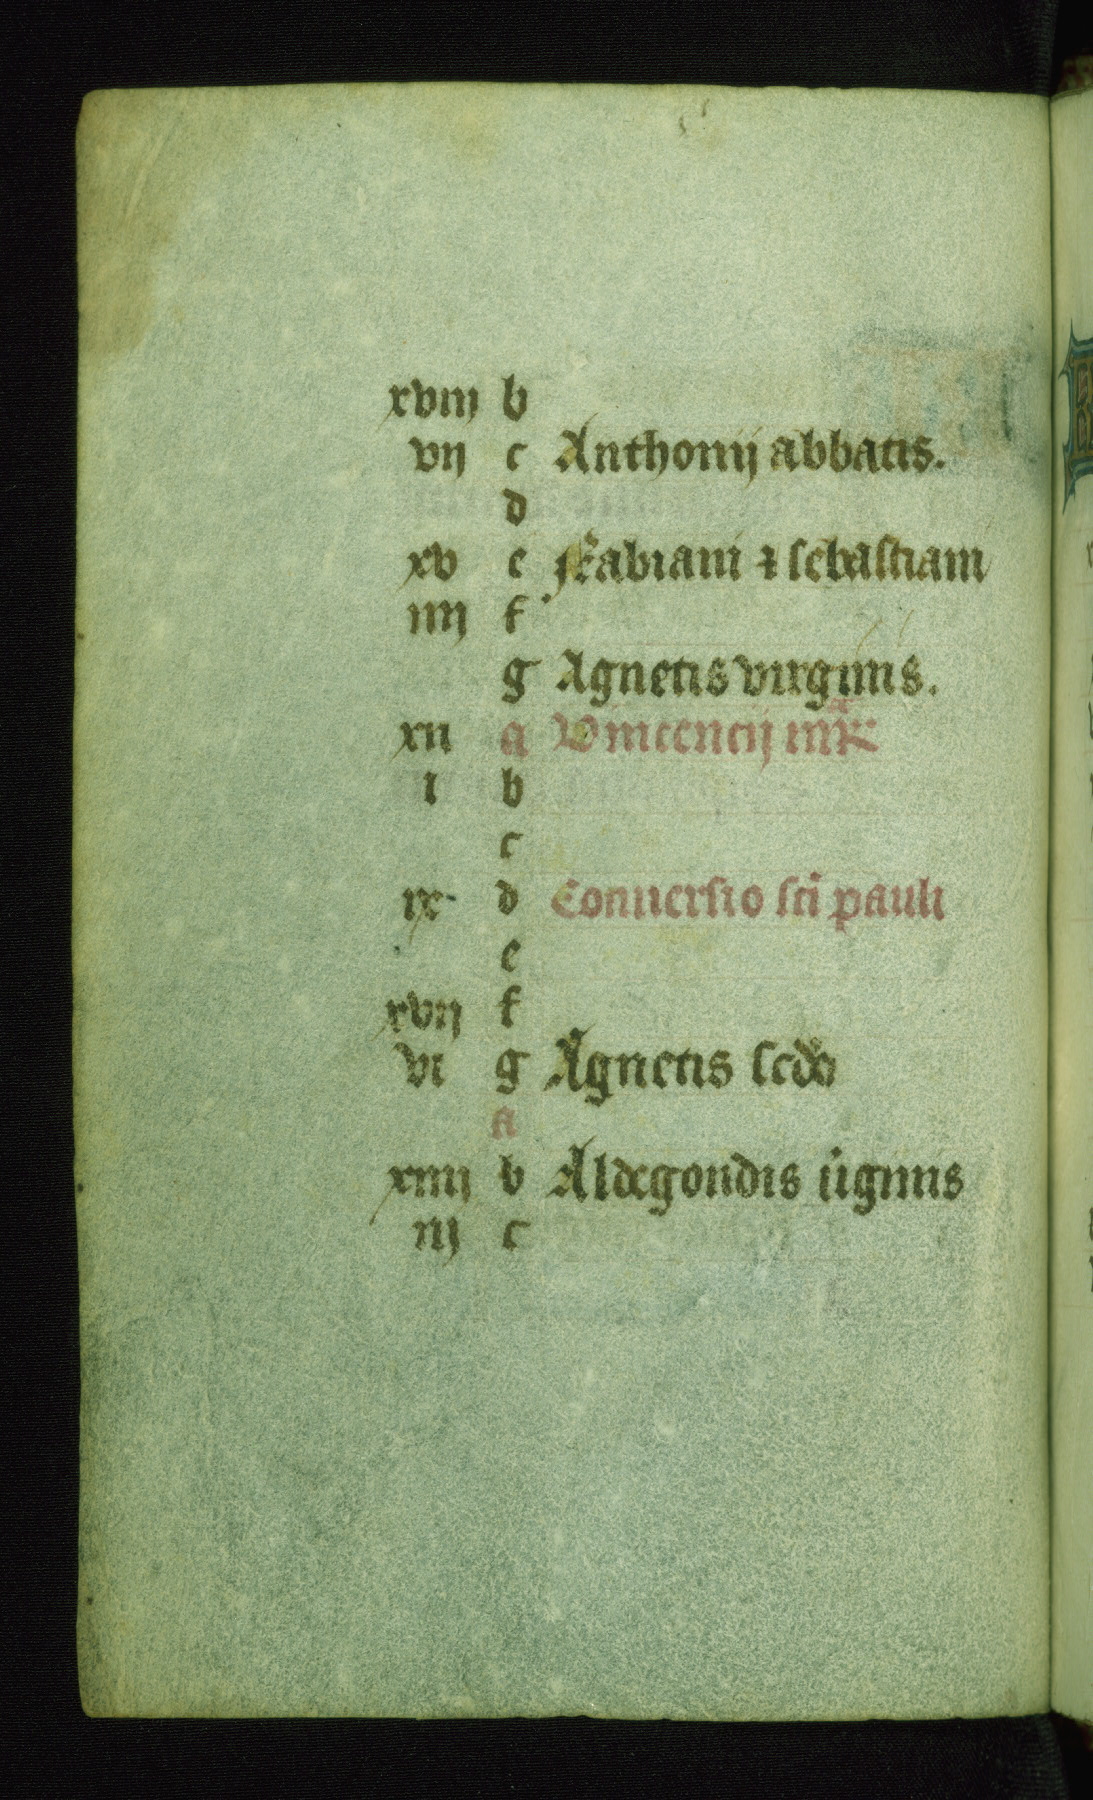 xviij b
vij c Anthonij abbatis.
d
xv e Fabiani ⁊ sebastiani
iiij f
g Agnetis virginis.
xii a Vincencij mr̃
i b
c
ix d Conuersio sci pauli
e
xvij f
vi g Agnetis scdo
a
xiiij b Aldegondis uiginis
iij c